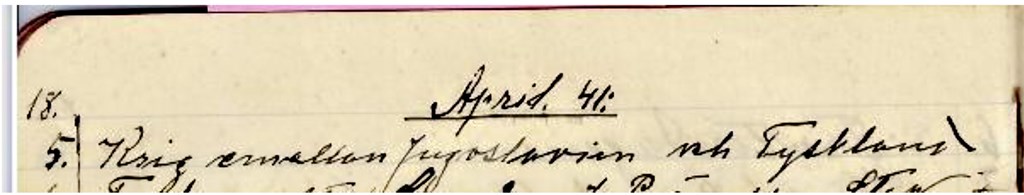 18. April. 41:
5. Krig emellan Jugoslavien och Tyskland